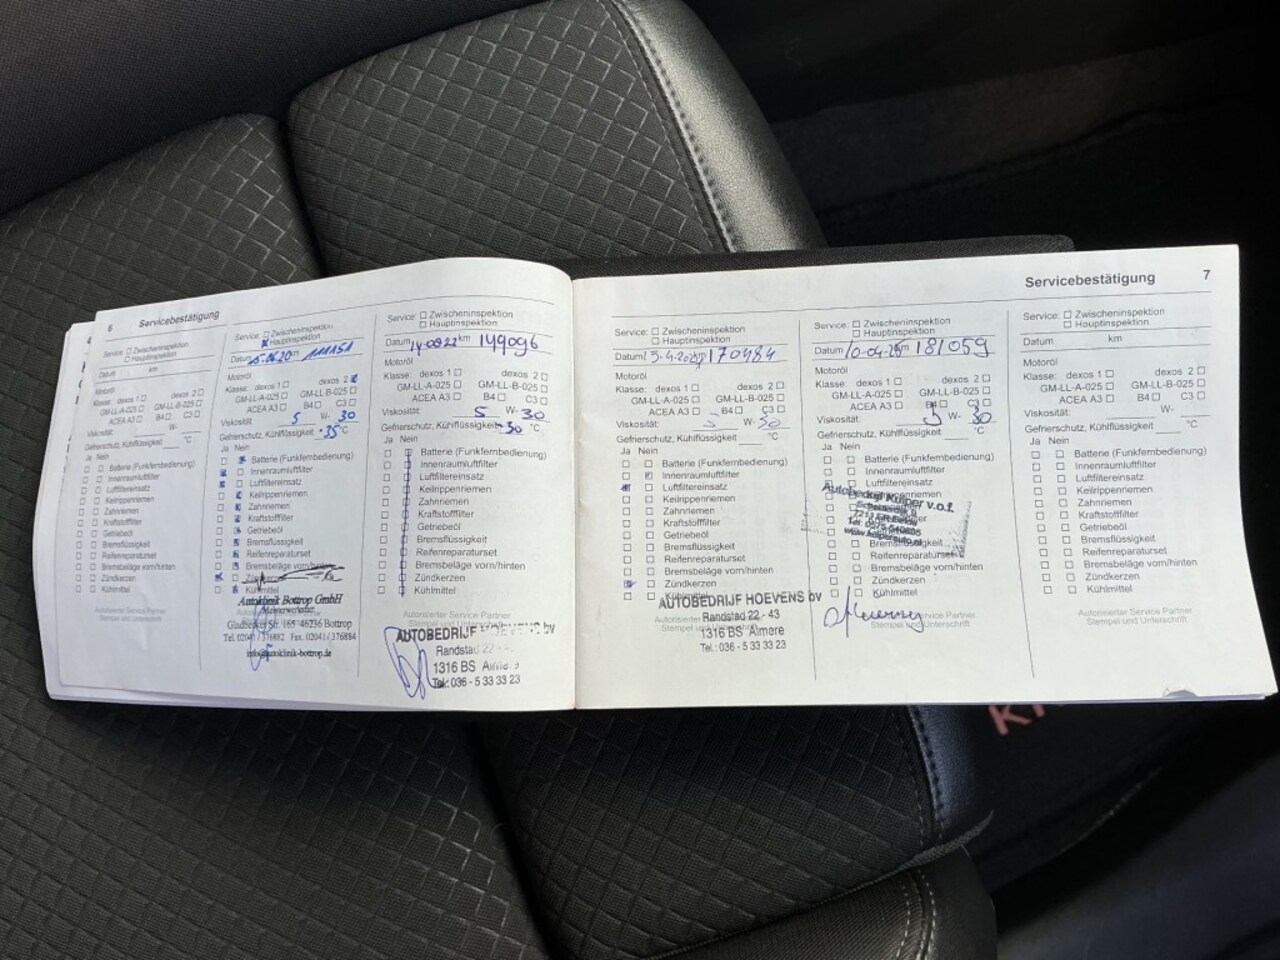 6 Servicebestätigung
Service: ☐ Zwischeninspektion
☐ Hauptinspektion
Datum km
Motoröl
Klasse: dexos 1 ☐ dexos 2 ☐
GM-LL-A-025 ☐ GM-LL-B-025 ☐
ACEA A3 ☐ B4 ☐ C3 ☐
Viskosität: W-
Gefrierschutz, Kühlflüssigkeit °C
Ja Nein
☐ ☐ Batterie (Funkfernbedienung)
☐ ☐ Innenraumluftfilter
☐ ☐ Luftfiltereinsatz
☐ ☐ Keilrippenriemen
☐ ☐ Zahnriemen
☐ ☐ Kraftstofffilter
☐ ☐ Getriebeöl
☐ ☐ Bremsflüssigkeit
☐ ☐ Reifenreparaturset
☐ ☐ Bremsbeläge vorn/hinten
☐ ☐ Zündkerzen
☐ ☐ Kühlmittel
Autorisierter Service Partner
Stempel und Unterschrift
Service: ☐ Zwischeninspektion
☒ Hauptinspektion
Datum km
Motoröl
Klasse: dexos 1 ☐ dexos 2 ☒
GM-LL-A-025 ☐ GM-LL-B-025 ☐
ACEA A3 ☐ B4 ☐ C3 ☐
Viskosität: 5 W- 30
Gefrierschutz, Kühlflüssigkeit -35 °C
Ja Nein
Batterie (Funkfernbedienung)
Innenraumluftfilter
Luftfiltereinsatz
Keilrippenriemen
Zahnriemen
Kraftstofffilter
Getriebeöl
Bremsflüssigkeit
Reifenreparaturset
Bremsbeläge vorn/hinten
Zündkerzen
Kühlmittel
Autoklinik Bottrop GmbH
Meisterwerkstatt
Gladbecker Str. 165 46236 Bottrop
Tel. 02041 / 376882 Fax. 02041 / 376884
info@autoklinik-bottrop.de
Service: ☐ Zwischeninspektion
☐ Hauptinspektion
Datum 14-0922 km 149096
Motoröl
Klasse: dexos 1 ☐ dexos 2 ☐
GM-LL-A-025 ☐ GM-LL-B-025 ☐
ACEA A3 ☐ B4 ☐ C3 ☐
Viskosität: 5 W- 30
Gefrierschutz, Kühlflüssigkeit -30 °C
Ja Nein
☐ ☐ Batterie (Funkfernbedienung)
☐ ☐ Innenraumluftfilter
☐ ☐ Luftfiltereinsatz
☐ ☐ Keilrippenriemen
☐ ☐ Zahnriemen
☐ ☐ Kraftstofffilter
☐ ☐ Getriebeöl
☐ ☐ Bremsflüssigkeit
☐ ☐ Reifenreparaturset
☐ ☐ Bremsbeläge vorn/hinten
☐ ☐ Zündkerzen
☐ ☐ Kühlmittel
Autorisierter Service Partner
Stempel und Unterschrift
AUTOBEDRIJF HOEVENS bv
Randstad
1316 BS Almere
Tel.: 036 - 5 33 33 23
Servicebestätigung 7
Service: ☐ Zwischeninspektion
☐ Hauptinspektion
Datum km 170484
Motoröl
Klasse: dexos 1 ☐ dexos 2 ☐
GM-LL-A-025 ☐ GM-LL-B-025 ☐
ACEA A3 ☐ B4 ☐ C3 ☐
Viskosität: 5 W- 30
Gefrierschutz, Kühlflüssigkeit °C
Ja Nein
☐ ☐ Batterie (Funkfernbedienung)
☐ ☒ Innenraumluftfilter
☒ ☐ Luftfiltereinsatz
☐ ☐ Keilrippenriemen
☐ ☐ Zahnriemen
☐ ☐ Kraftstofffilter
☐ ☐ Getriebeöl
☐ ☐ Bremsflüssigkeit
☐ ☐ Reifenreparaturset
☐ ☐ Bremsbeläge vorn/hinten
☒ ☐ Zündkerzen
☐ ☐ Kühlmittel
AUTOBEDRIJF HOEVENS bv
Randstad 22 - 43
1316 BS Almere
Tel.: 036 - 5 33 33 23
Service: ☐ Zwischeninspektion
☐ Hauptinspektion
Datum 10-04-25 km 181059
Motoröl
Klasse: dexos 1 ☐ dexos 2 ☐
GM-LL-A-025 ☐ GM-LL-B-025 ☐
ACEA A3 ☐ B4 ☐ C3 ☐
Viskosität: 5 W- 30
Gefrierschutz, Kühlflüssigkeit °C
Ja Nein
☐ ☐ Batterie (Funkfernbedienung)
☐ ☐ Innenraumluftfilter
Luftfiltereinsatz
Autobedrijf Kuiper v.o.f.
Bremsflüssigkeit
☐ ☐ Reifenreparaturset
☐ ☐ Bremsbeläge vorn/hinten
☐ ☐ Zündkerzen
☐ ☐ Kühlmittel
Service Partner
Stempel und Unterschrift
Service: ☐ Zwischeninspektion
☐ Hauptinspektion
Datum km
Motoröl
Klasse: dexos 1 ☐ dexos 2 ☐
GM-LL-A-025 ☐ GM-LL-B-025 ☐
ACEA A3 ☐ B4 ☐ C3 ☐
Viskosität: W-
Gefrierschutz, Kühlflüssigkeit °C
Ja Nein
☐ ☐ Batterie (Funkfernbedienung)
☐ ☐ Innenraumluftfilter
☐ ☐ Luftfiltereinsatz
☐ ☐ Keilrippenriemen
☐ ☐ Zahnriemen
☐ ☐ Kraftstofffilter
☐ ☐ Getriebeöl
☐ ☐ Bremsflüssigkeit
☐ ☐ Reifenreparaturset
☐ ☐ Bremsbeläge vorn/hinten
☐ ☐ Zündkerzen
☐ ☐ Kühlmittel
Autorisierter Service Partner
Stempel und Unterschrift